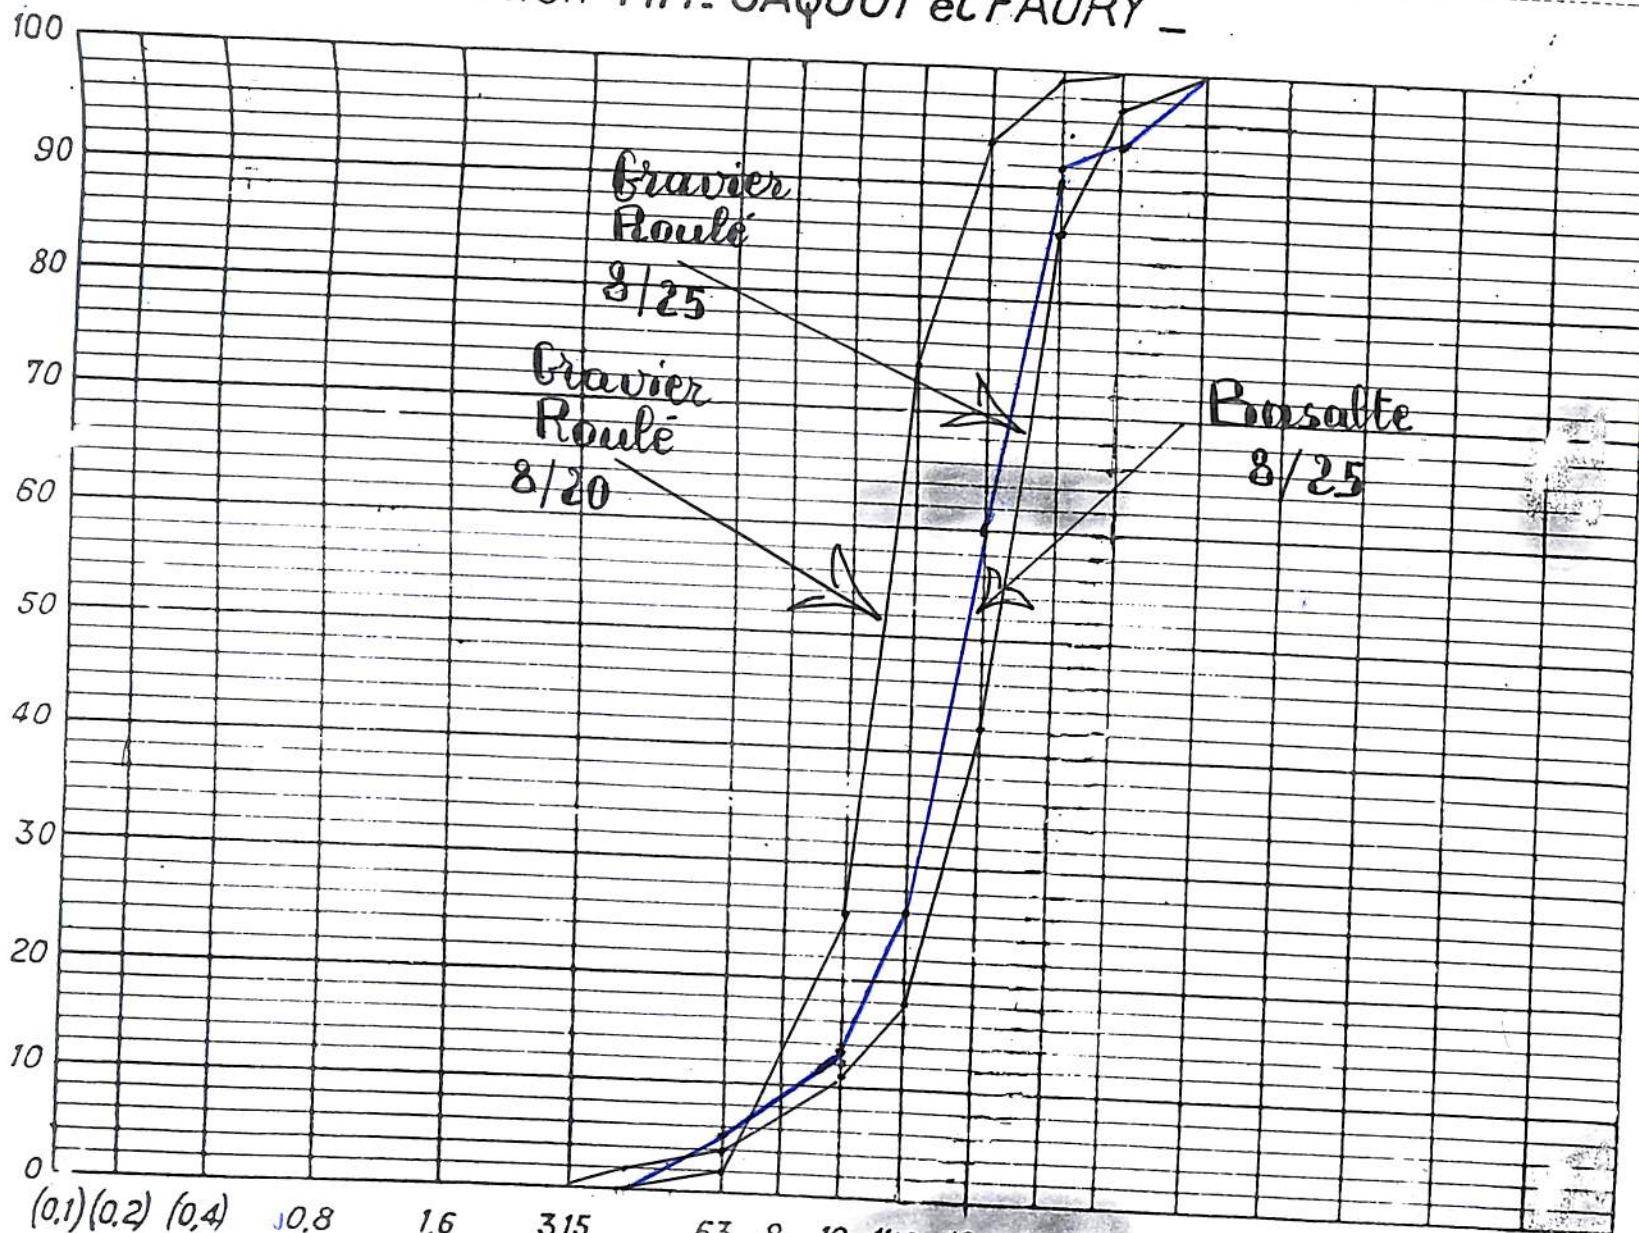 MM. JAQUOT et FAURY _
100
90
80
70
60
50
40
30
20
10
0
Gravier
Roulé
8/25
Gravier
Roulé
8/20
Basalte
8/25
(0,1) (0,2) (0,4) 0,8 1,6 3,15 6,3 8 10